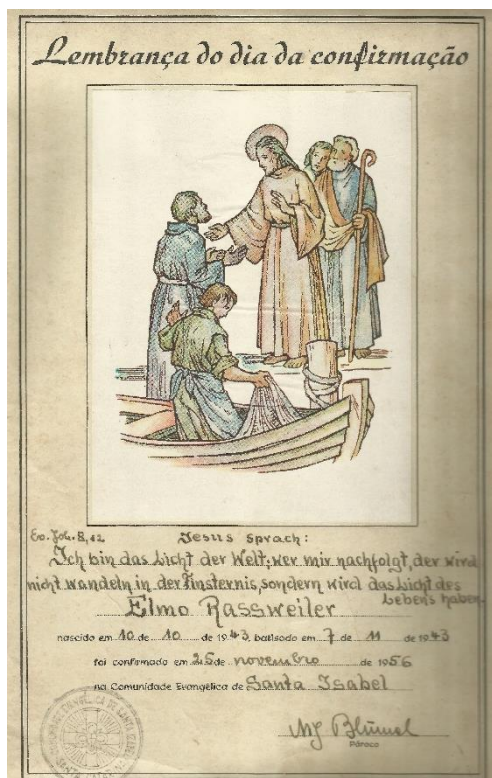 Lembrança do dia da confirmação
Ev. Joh. 8,12 Jesus sprach:
Ich bin das Licht der Welt; wer mir nachfolgt, der wird
nicht wandeln in der Finsternis, sondern wird das Licht des
Lebens haben.
Elmo Rassweiler
nascido em 10 de 10 de 1943 batisado em 7 de 11 de 1943
foi confirmado em 25 de novembro de 1956
na Comunidade Evangélica de Santa Isabel
Blümel
Pároco